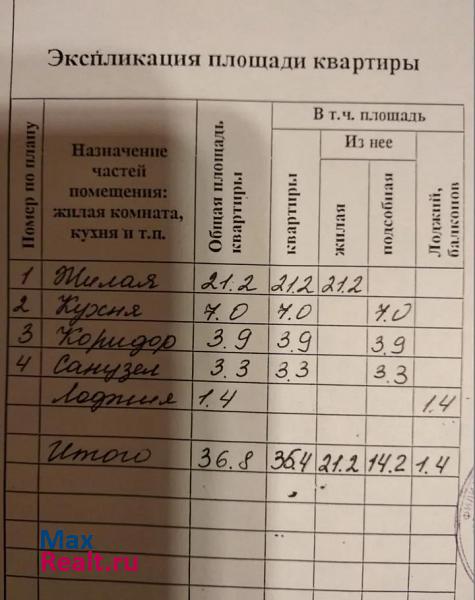 Экспликация площади квартиры
Номер по плану
Назначение
частей
помещения:
жилая комната,
кухня и т.п.
Общая площадь
квартиры
В т.ч. площадь
квартиры
Из нее
жилая
подсобная
Лоджий,
балконов
1 Жилая 21.2 21.2 21.2
2 Кухня 7.0 7.0 7.0
3 Коридор 3.9 3.9 3.9
4 Санузел 3.3 3.3 3.3
Лоджия 1.4 1.4
Итого 36.8 35.4 21.2 14.2 1.4
Max
Realt.ru